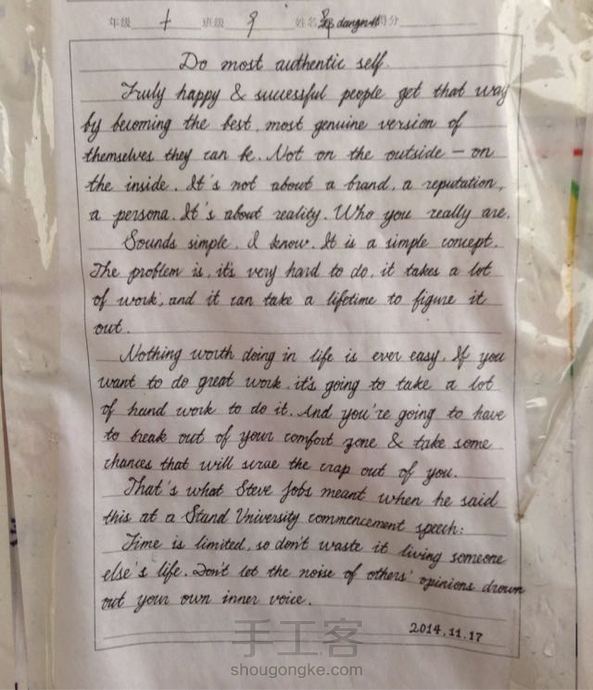 年级 十 班级 9 姓名 分
Do most authentic self.
Truly happy & successful people get that way
by becoming the best, most genuine version of
themselves they can be. Not on the outside – on
the inside. It's not about a brand, a reputation,
a persona. It's about reality. Who you really are.
Sounds simple, I know. It is a simple concept.
The problem is, it's very hard to do, it takes a lot
of work, and it can take a lifetime to figure it
out.
Nothing worth doing in life is ever easy. If you
want to do great work, it's going to take a lot
of hand work to do it. And you're going to have
to break out of your comfort zone & take some
chances that will scrae the crap out of you.
That's what Steve Jobs meant when he said
this at a Stand University commencement speech:
Time is limited, so don't waste it living someone
else's life. Don't let the noise of others' opinions drown
out your own inner voice.
2014.11.17
手工客
shougongke.com